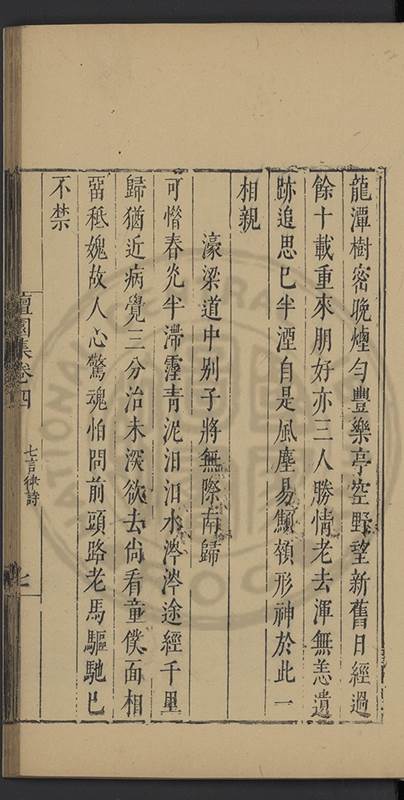 龍潭樹密晚煙勻豐樂亭空野望新舊日經過
餘十載重來朋好亦三人勝情老去渾無恙遺
跡追思已半湮自是風塵易顦顇形神於此一
相親
濠梁道中別子將無際南歸
可憎春光半滯霪青泥汩汩水涔涔途經千里
歸猶近病覺三分治未深欲去尙看童僕面相
留秪媿故人心驚魂怕問前頭路老馬驅馳已
不禁
檀園集卷四
七言律詩
七